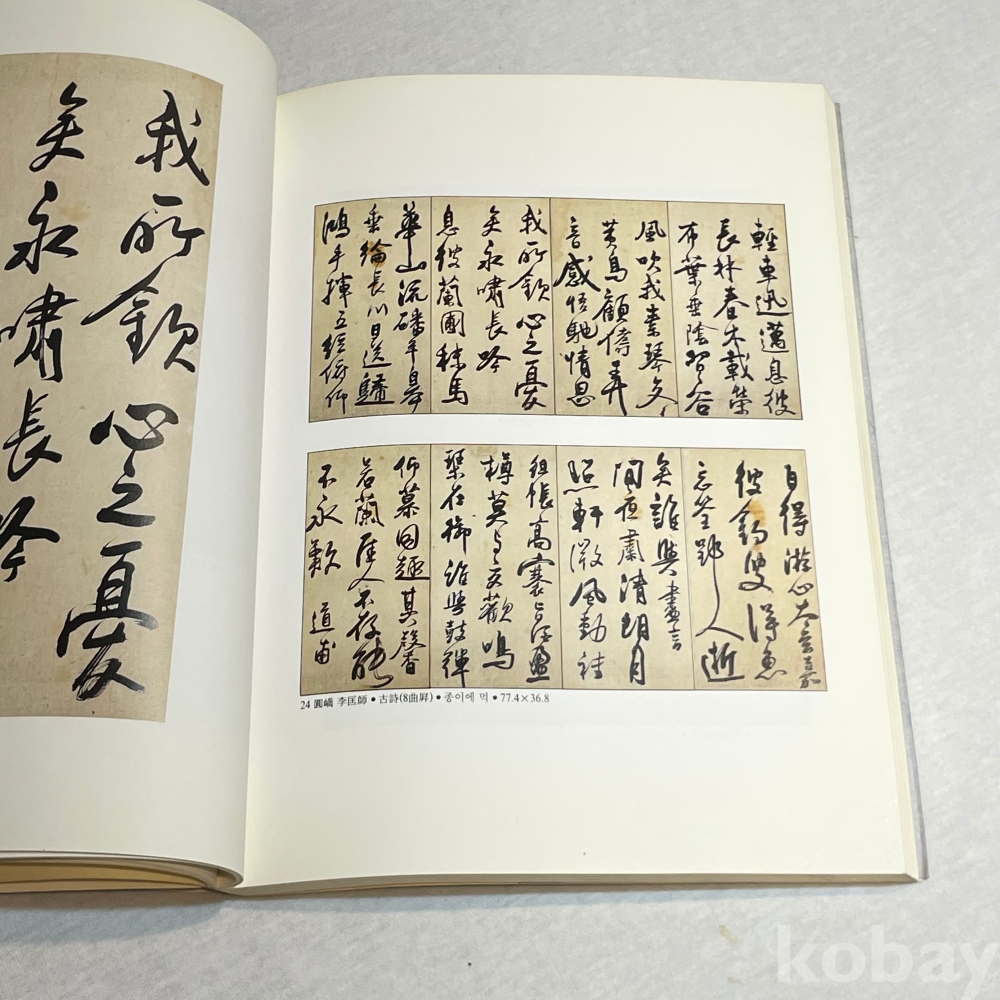 我所欽心之憂
矣永嘯長吟
輕車迅邁息彼
長林春木載榮
布葉垂陰習〻谷
風吹我素琴交〻
黃鳥顧儔弄
音感悟馳情思
我所欽心之憂
矣永嘯長吟
息彼蘭圃秣馬
華山流磻平皋
垂綸長川目送歸
鴻手揮五絃俯仰
自得游心太玄嘉
彼釣叟得魚
忘筌郢人逝
矣誰與盡言
閒夜肅清朗月
照軒微風動袿
組帳高褰旨酒盈
樽莫與交歡鳴
琴在御誰與鼓彈
仰慕同趣其馨
若蘭佳人不存能
不永歎 道甫
24 圓嶠 李匡師 • 古詩(8曲屛) • 종이에 먹 • 77.4×36.8
kobay